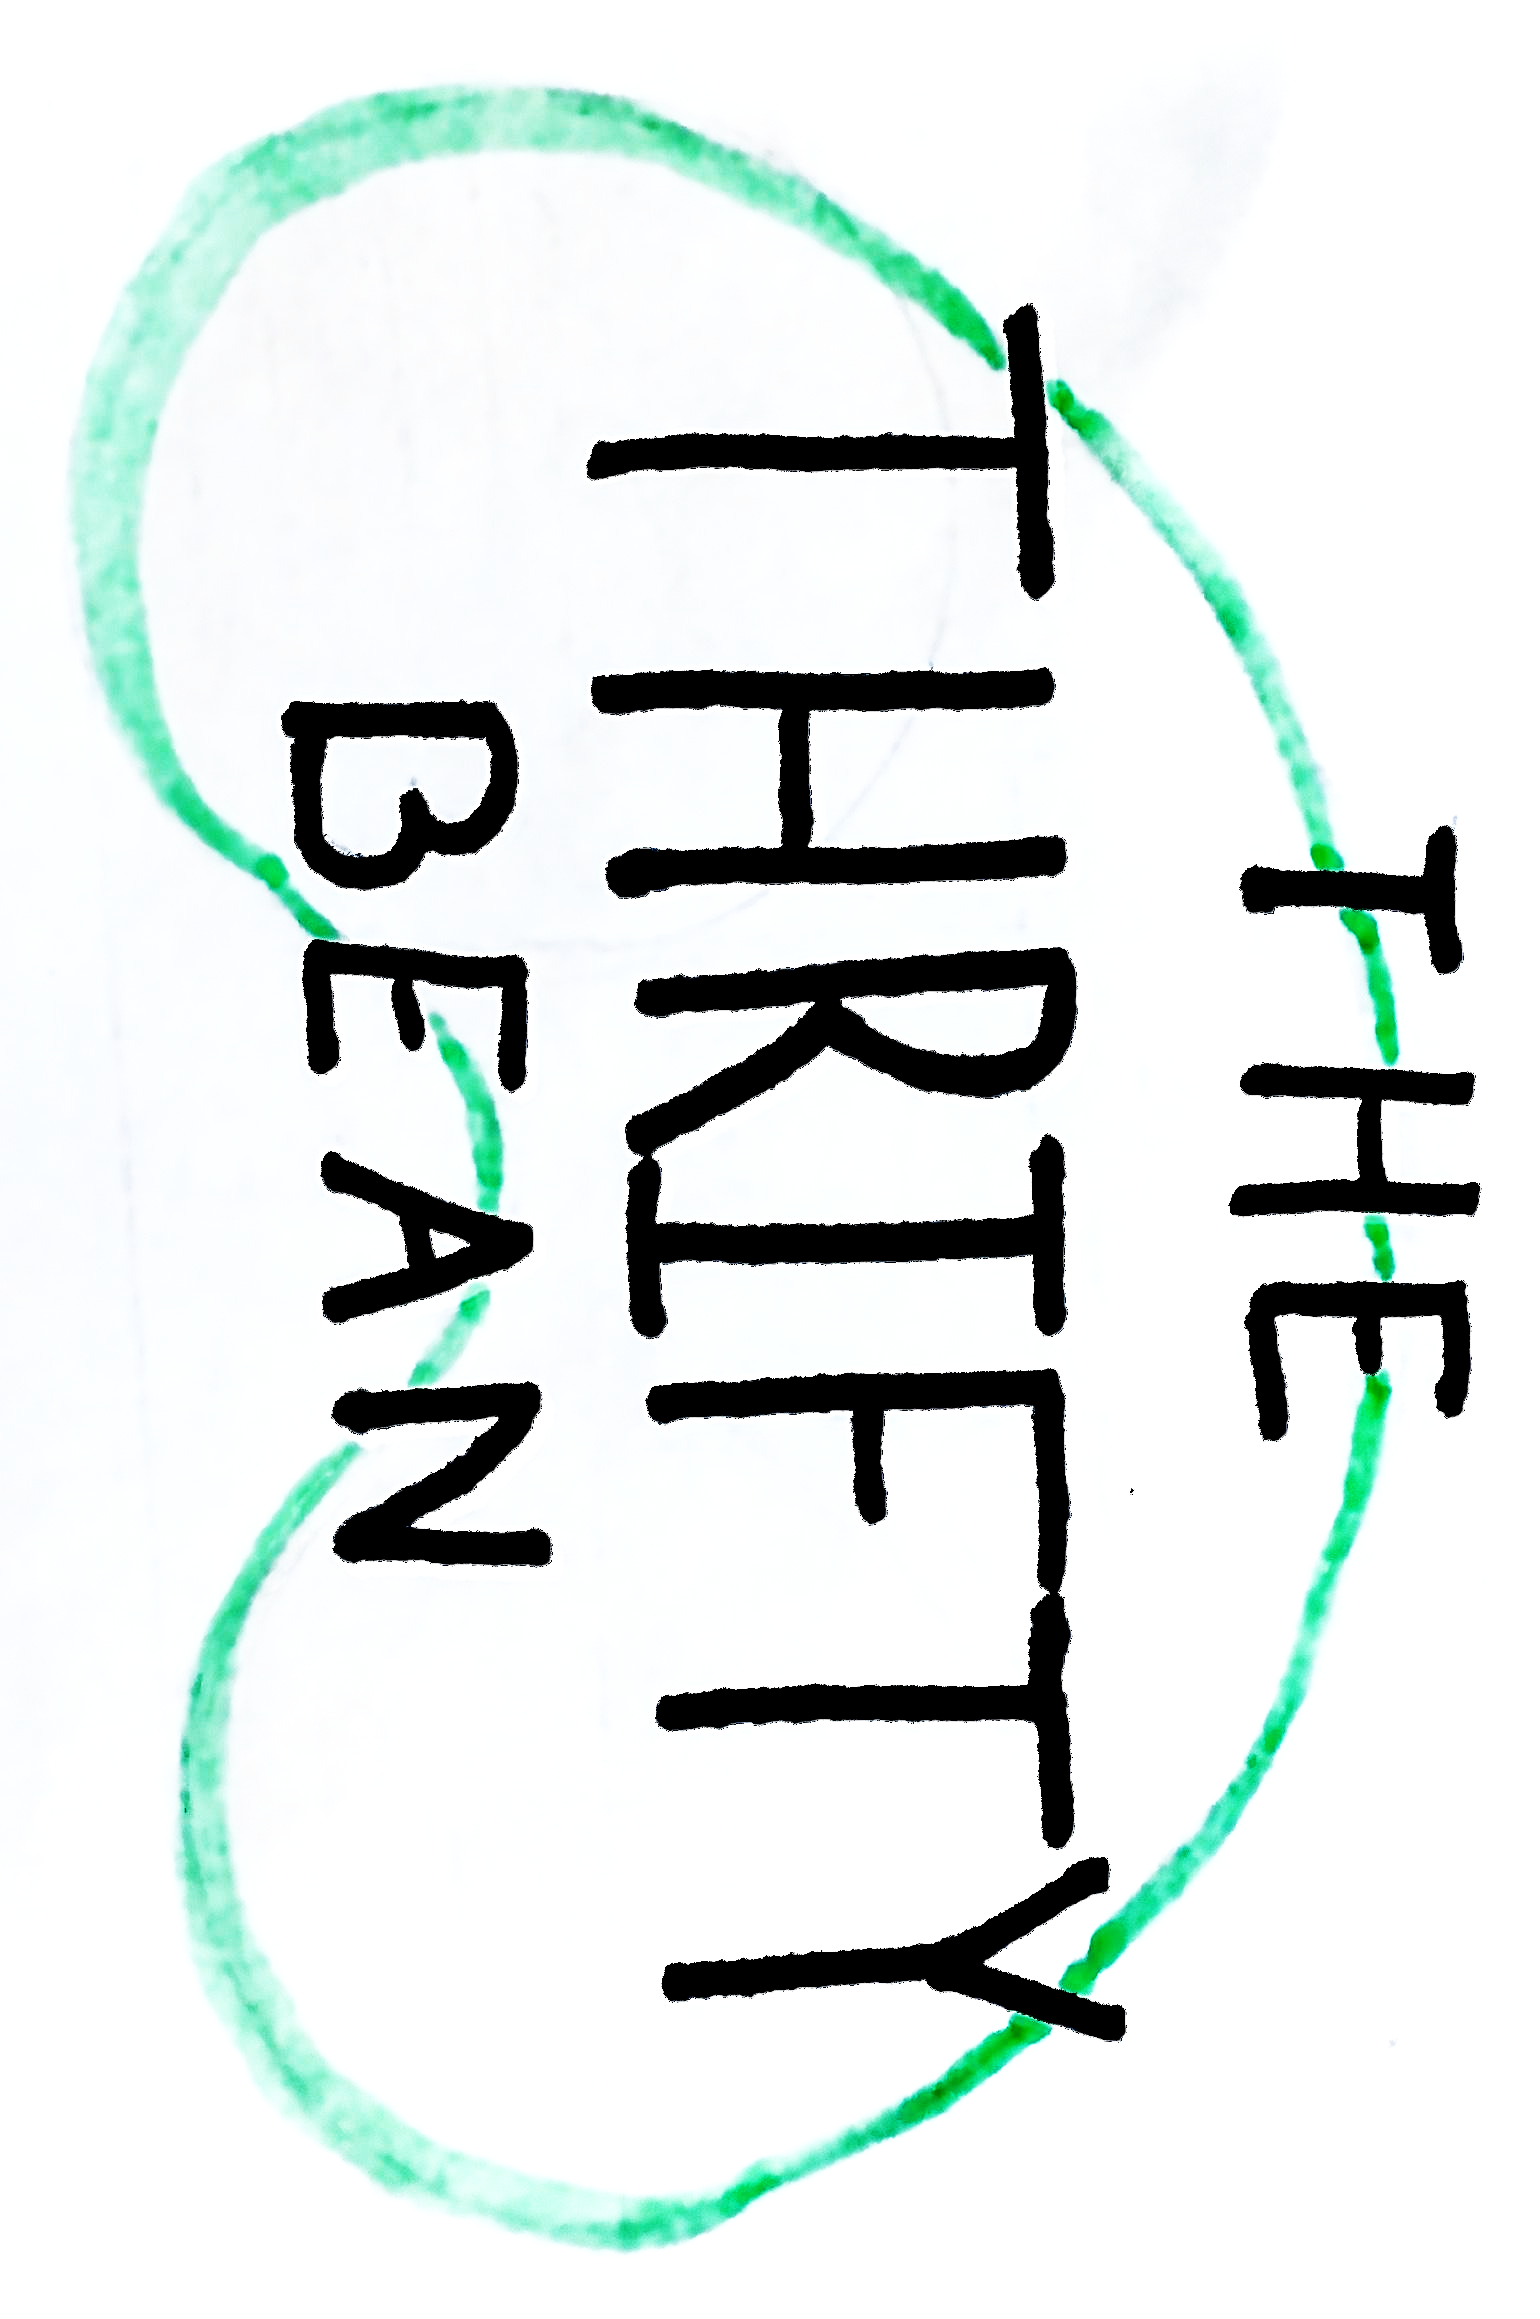 THE
THRIFTY
BEAN